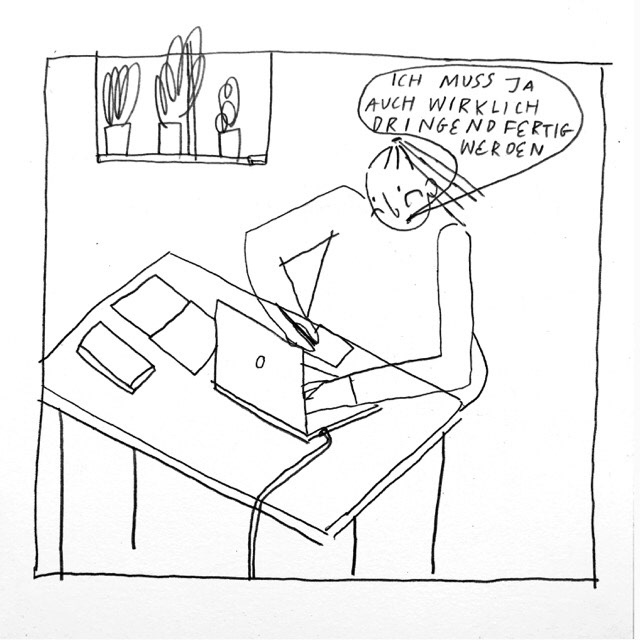 ICH MUSS JA
AUCH WIRKLICH
DRINGEND FERTIG
WERDEN